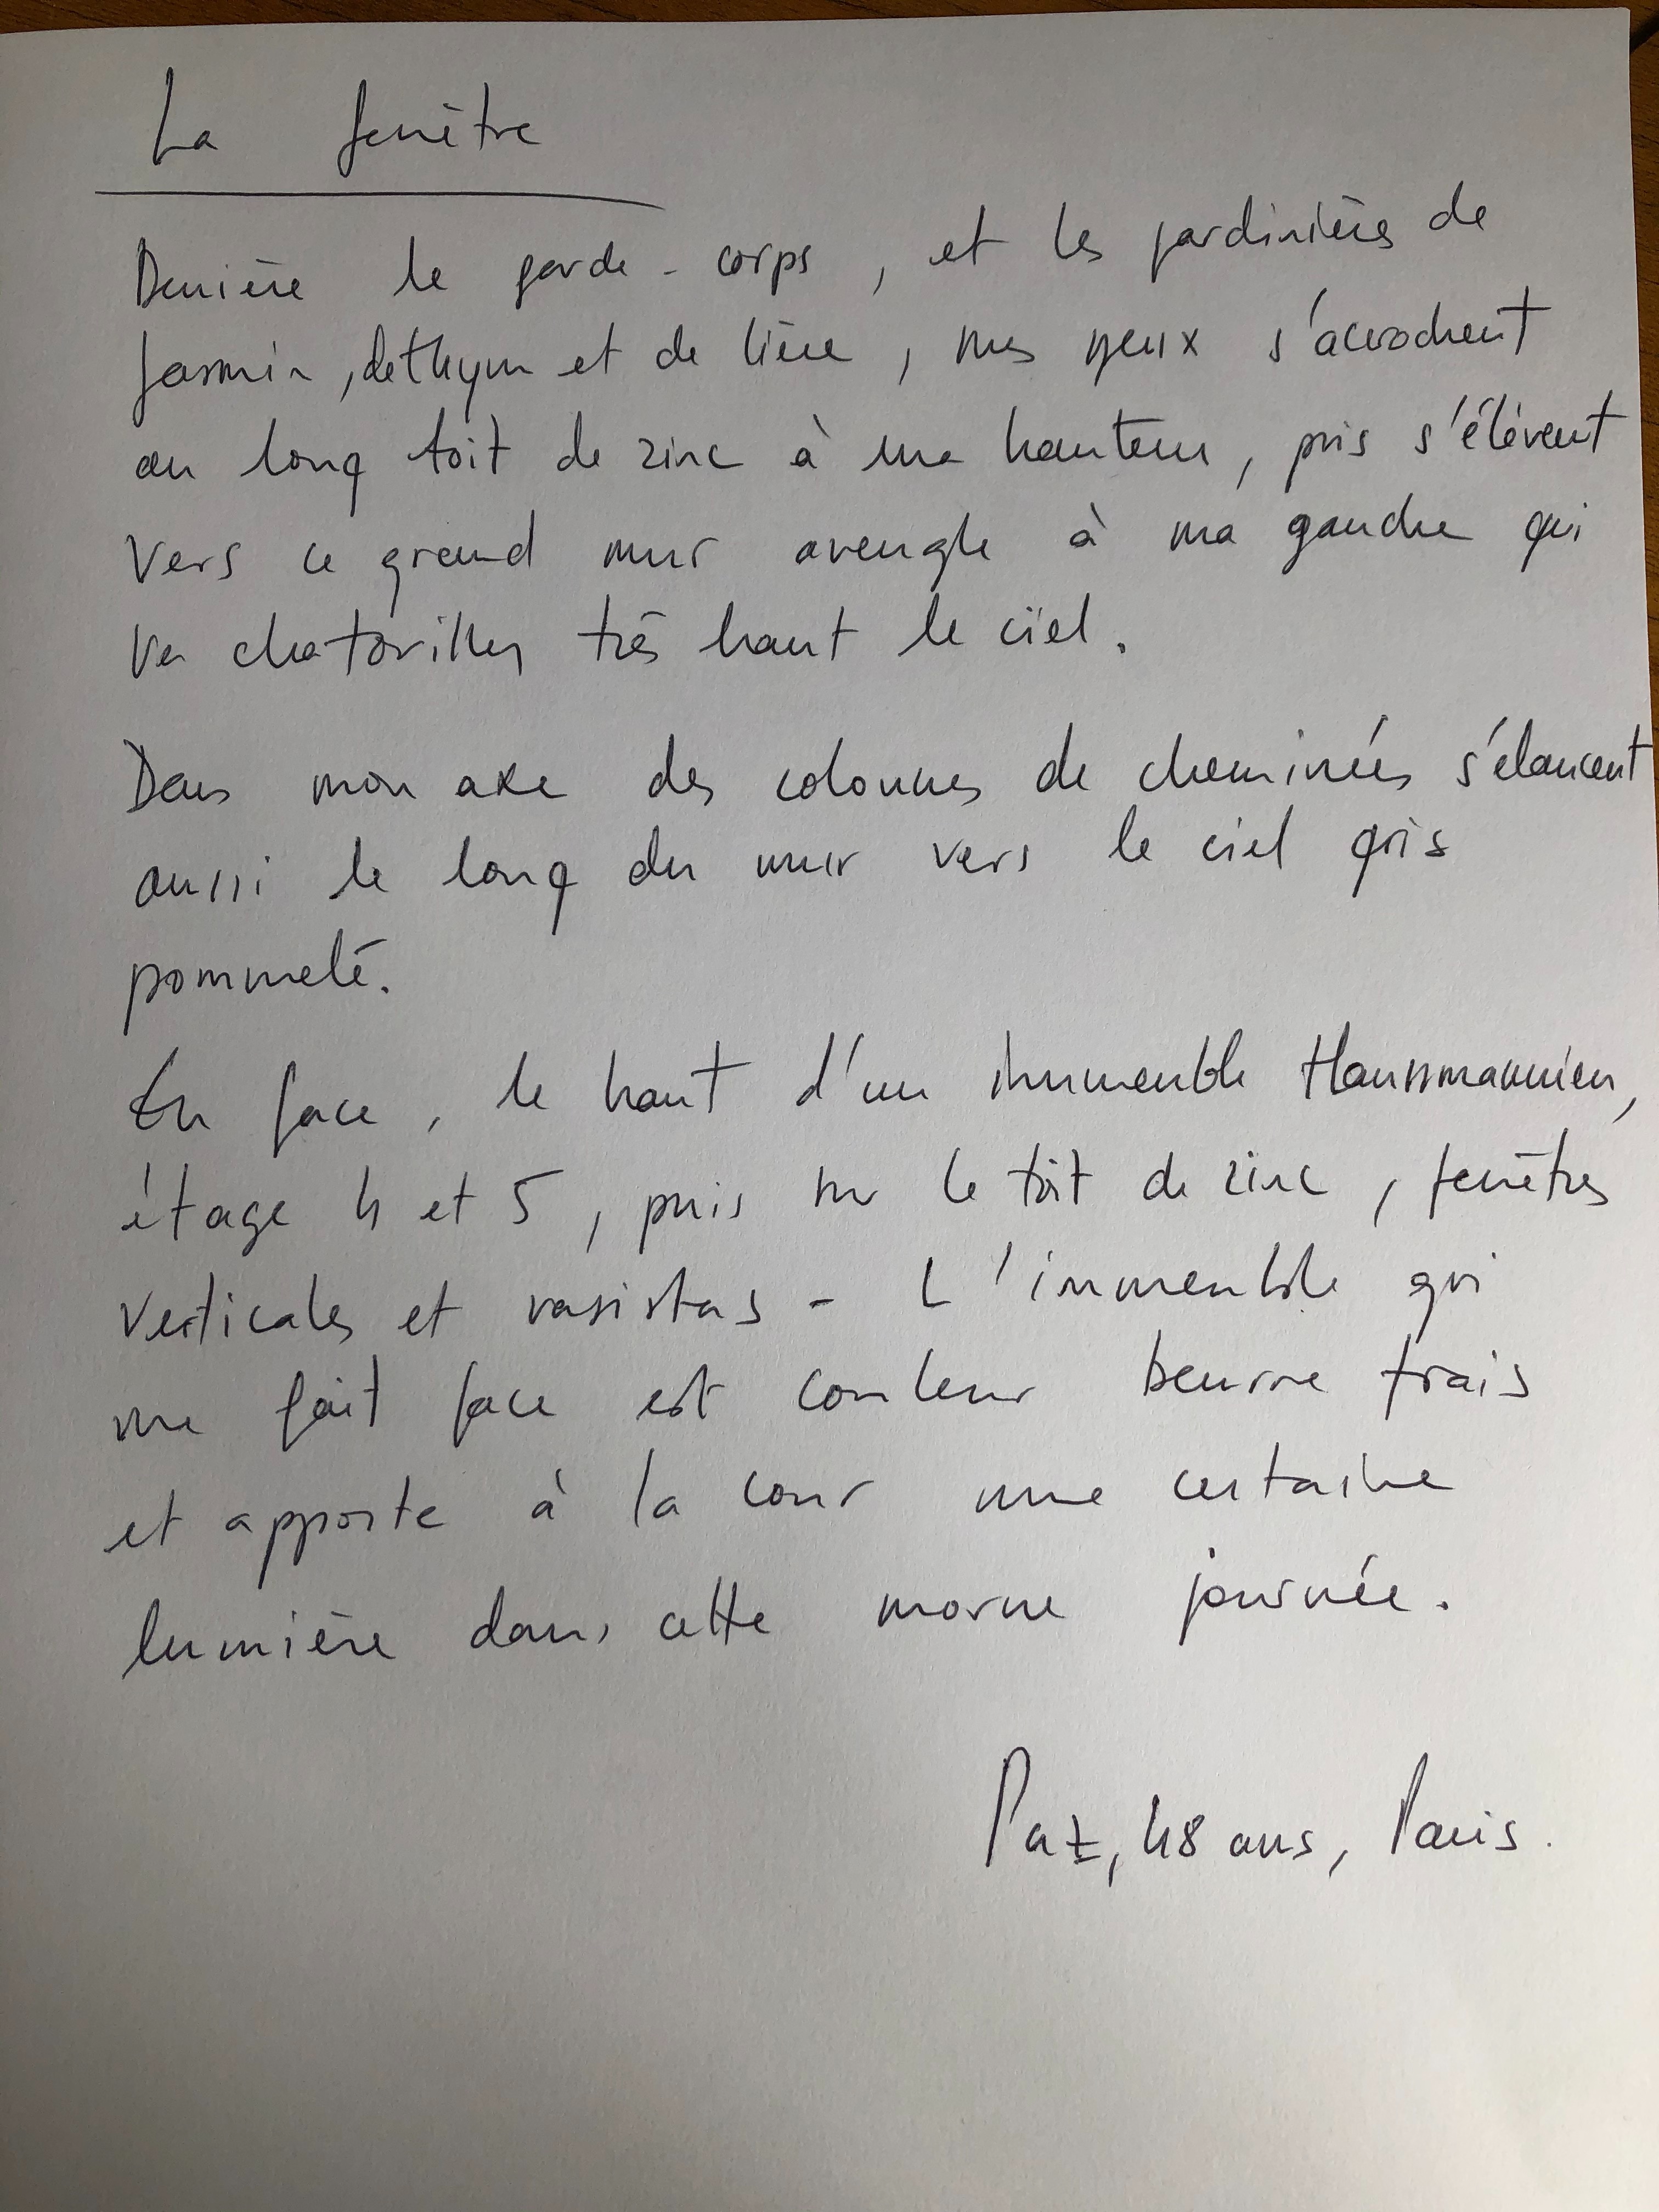 La fenêtre
Derrière le garde-corps, et les jardinières de
jasmin, de thym et de lierre, mes yeux s'accrochent
au long toit de zinc à ma hauteur, puis s'élèvent
vers ce grand mur aveugle à ma gauche qui
va chatouiller très haut le ciel.
Dans mon axe des colonnes de cheminées s'élancent
aussi le long du mur vers le ciel gris
pommelé.
En face, le haut d'un immeuble Haussmannien,
étage 4 et 5, puis sur le toit de zinc, fenêtres
verticales et vasistas - L'immeuble qui
me fait face est couleur beurre frais
et apporte à la cour une certaine
lumière dans cette morne journée.
Paz, 48 ans, Paris.